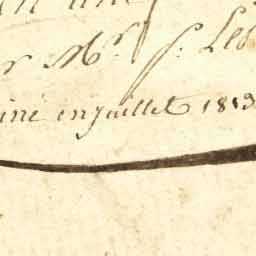 r Mr. f. Les
iné en juillet 1813